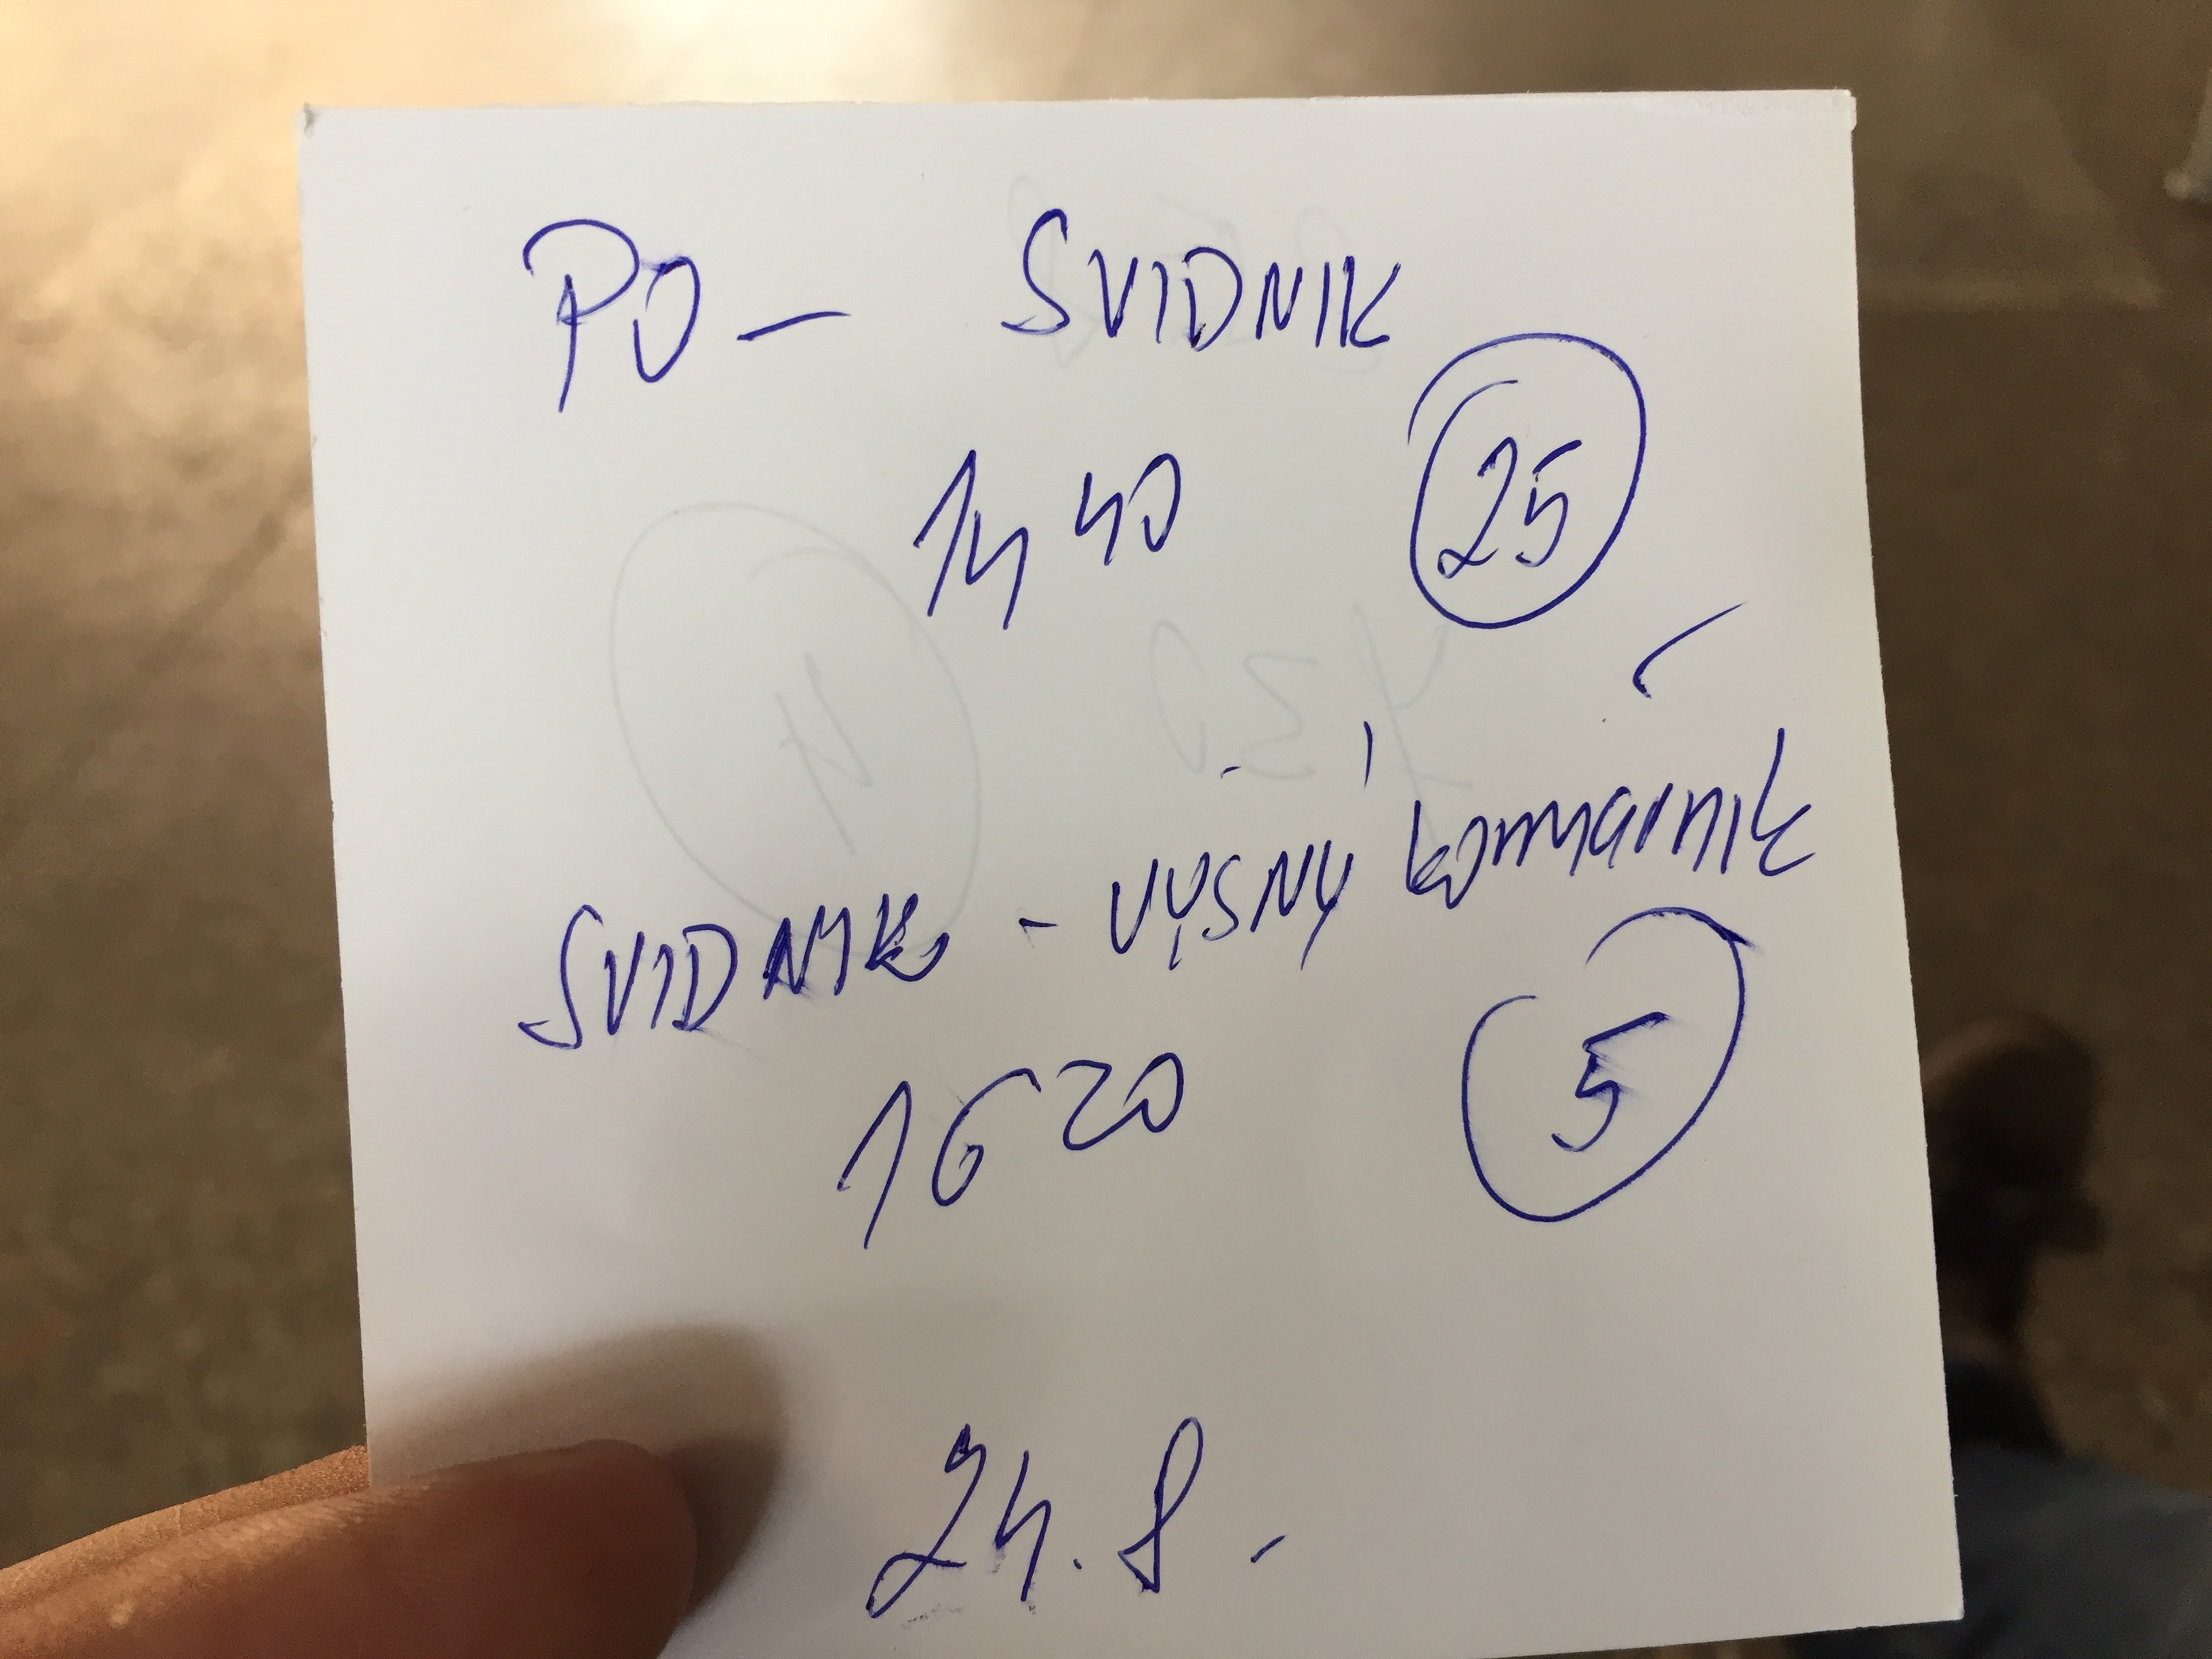 PO - SVIDNIK
14 40 25
SVIDNIK - VYŠNÝ komárnik
16 20 5
24. 8.